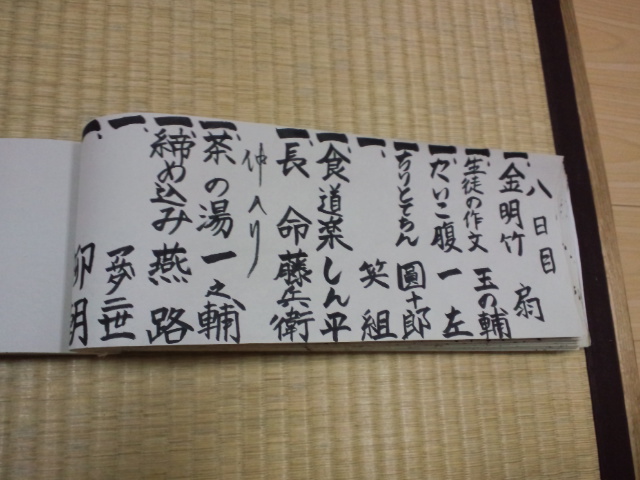 八日目
一、金明竹 扇
一、生徒の作文 玉の輔
一、たいこ腹 一左
一、ちりとてちん 圓十郎
一、 笑組
一、食道楽 しん平
一、長命 藤兵衛
仲入り
一、茶の湯 一之輔
一、締め込み 燕路
一、 夢二世
一、